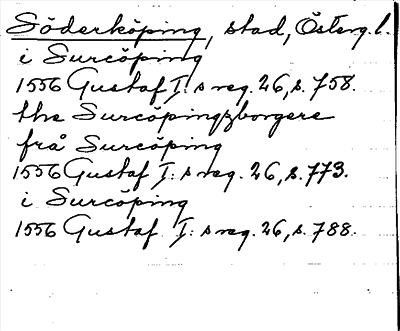 Söderköping, stad, Österg. l.
i Surcöping
1556 Gustaf I: s reg. 26, s. 758.
the Surcöpingzborgere
frå Surcöping
1556 Gustaf I: s reg. 26, s. 773.
i Surcöping
1556 Gustaf I: s reg. 26, s. 788.